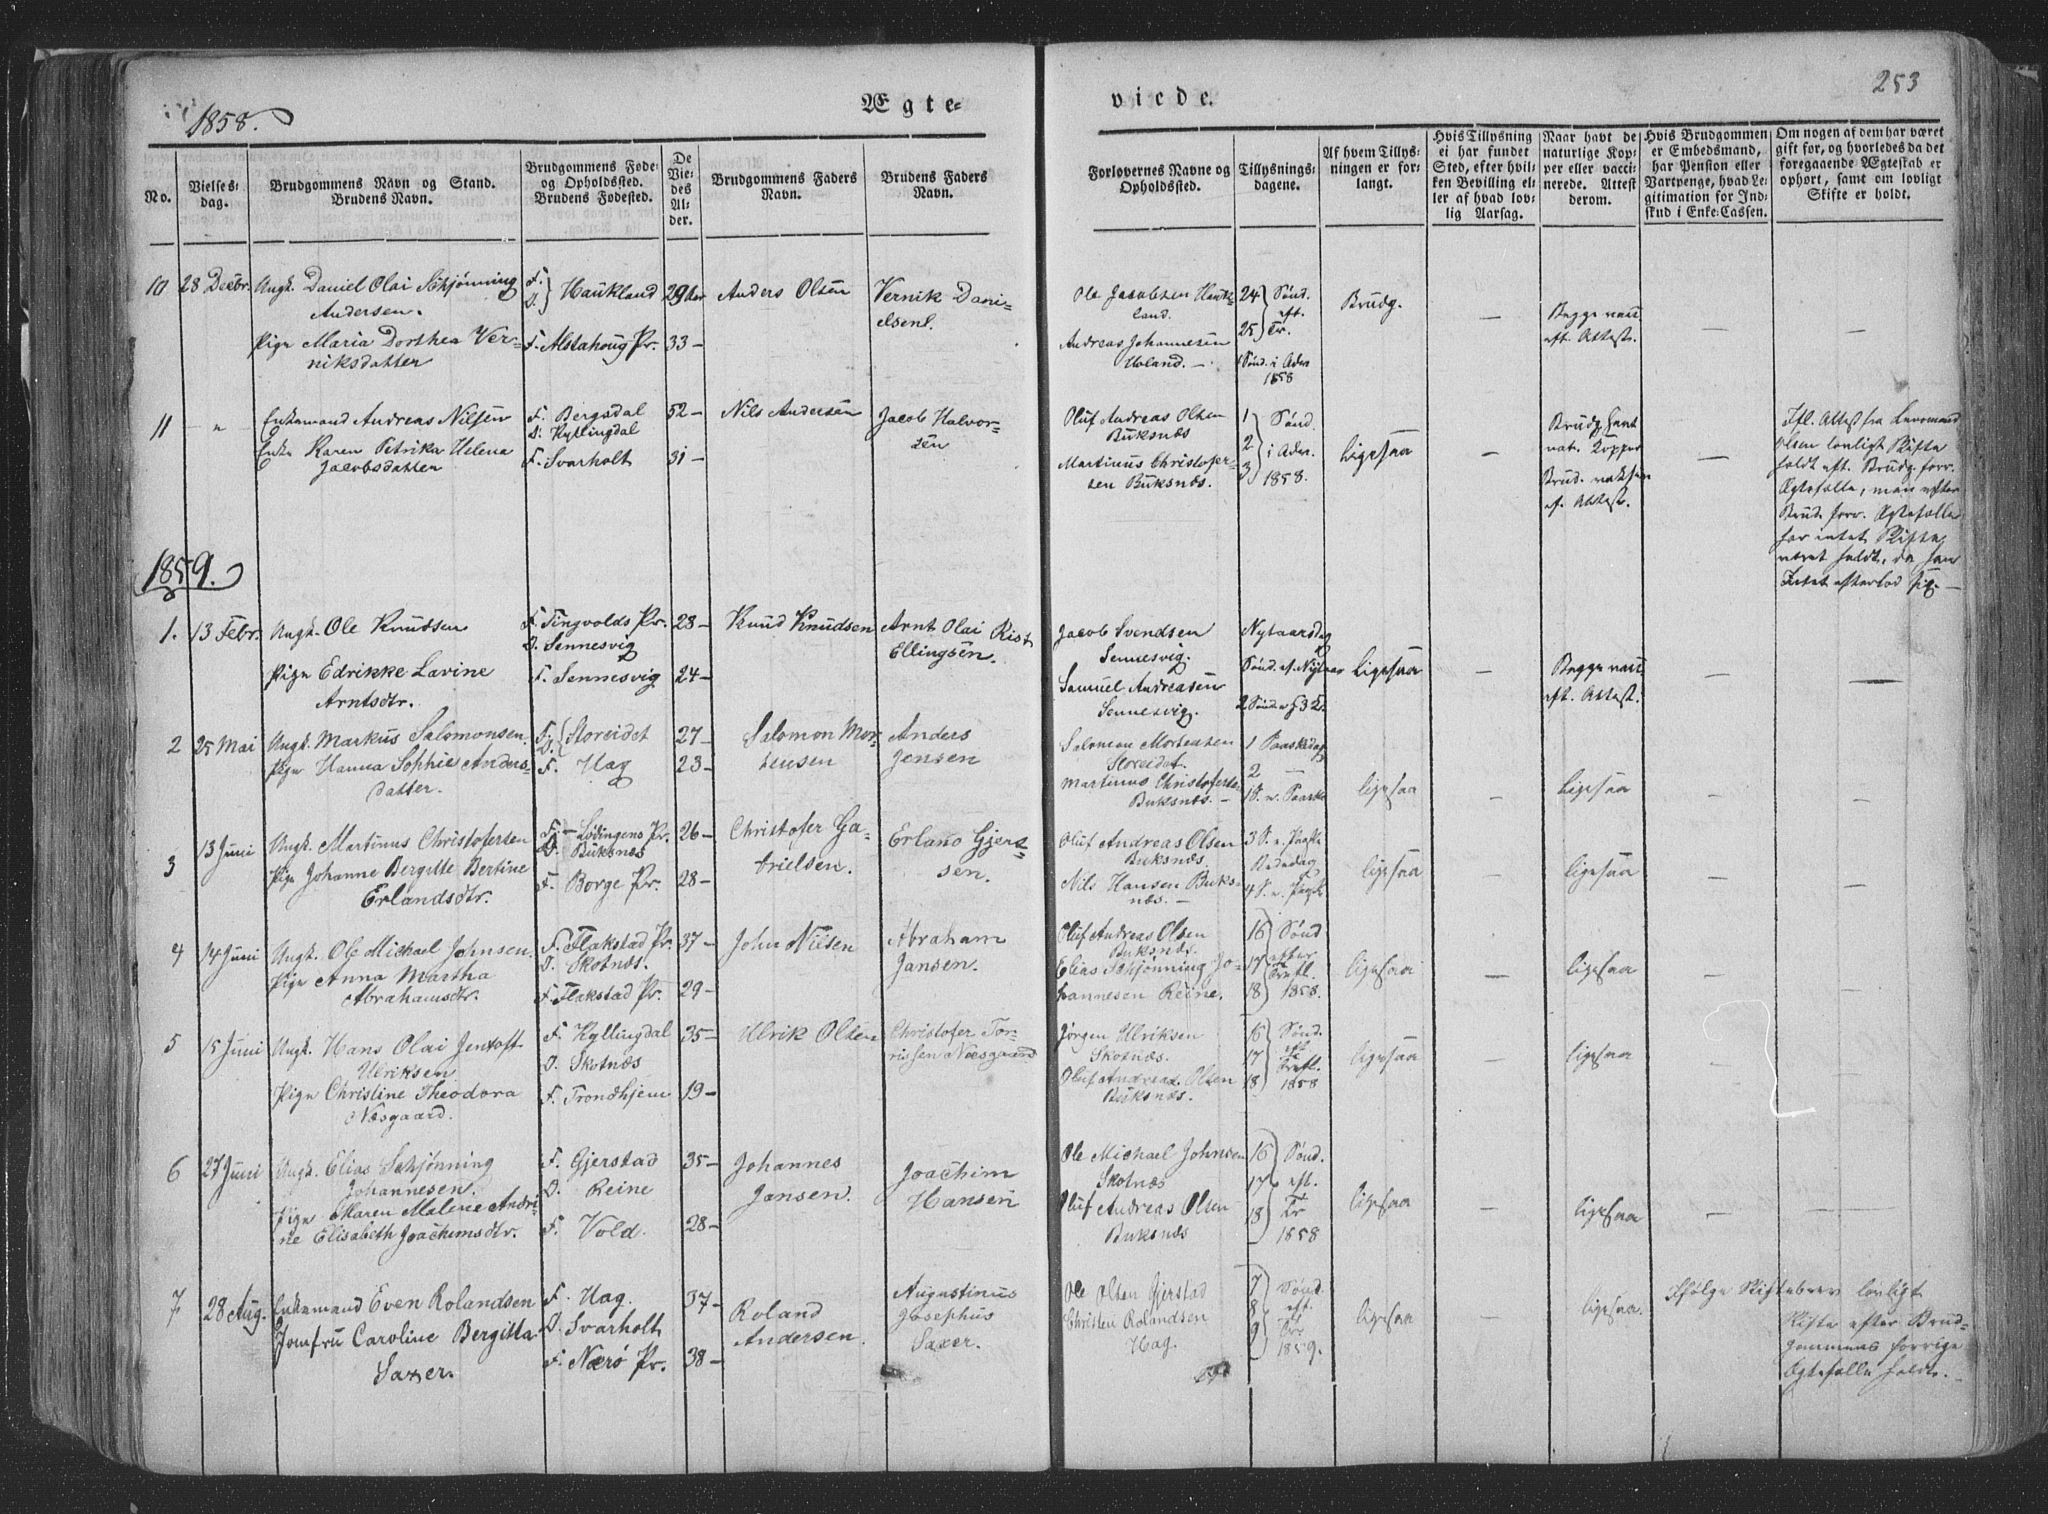 1858.
Ægte-
viede.
253
No.
Vielses-
dag.
Brudgommens Navn og Stand.
Brudens Navn.
Brudgommens Føde-
og Opholdssted.
Brudens Fødested.
De
Vie-
des
Al-
der.
Brudgommens Faders
Navn.
Brudens Faders
Navn.
Forlovernes Navne og
Opholdssted.
Tillysnings-
dagene.
Af hvem Tillys-
ningen er for-
langt.
Hvis Tillysning
ei har fundet
Sted, efter hvil-
ken Bevilling el-
ler af hvad lov-
lig Aarsag.
Naar havt de
naturlige Kop-
per eller vacci-
nerede. Attest
derom.
Hvis Brudgommen
er Embedsmand,
har Pension eller
Vartpenge, hvad Le-
gitimation for Ind-
skud i Enke-Cassen.
Om nogen af dem har været
gift før, og hvorledes da det
foregaaende Ægteskab er
ophørt, samt om lovligt
Skifte er holdt.
10 28 Decbr. Ungk. Daniel Olai Schjønning
Andersen.
Pige Maria Dorthea Ver-
niksdatter
F.
O. } Haukland
F. Alstahoug Pr.
29
33 -
Anders Olsen
Vernik Dani-
elsen.
Ole Jacobsen Hauk-
land.
Andreas Johannesen
Holand. -
24 } Sønd.
eft.
25 Tr.
1 Sønd. i Adv.
1858
Brudg.
-
Begge vacc.
eft. Attest.
-
-
11 - " Enkemand Andreas Nilsen
Enke Karen Petrika Helena
Jacobsdatter
F. Bergsdal
O. Kyllingdal
F. Svarholt
52 -
31 -
Nils Andersen
Jacob Halvor-
sen
Oluf Andreas Olsen
Buksnæs
Martinus Christofer-
sen Buksnæs.
1 Sønd.
2 i Adv.
3 1858.
ligesaa
-
Brudg. havt
nat. Kopper
Brud. vaksin.
ef. Attest.
-
Ifl. Attest fra Lensmand
Olsen lovligt Skifte
holdt eft. Brudg. forr.
Ægtefælle, men efter
Brud. forr. Ægtefælle
har intet Skifte
været holdt, da han
Intet efterlod sig. -
1859.
1. 13 Febr. Ungk. Ole Knudsen
Pige Edrikke Lavine
Arntsdtr.
F. Tingvolds Pr.
O. Sennesvig
F. Sennesvig
28 -
24 -
Knud Knudsen
Arnt Olai Rist
Ellingsen.
Jacob Svendsen
Sennesvig.
Samuel Andreasen
Sennesvig.
Nytaarsdag
Sønd. ef. Nytaar
ligesaa
-
Begge vacc.
eft. Attest.
-
-
2 25 Mai Ungk. Markus Salomonsen.
Pige Hanna Sophie Anders-
datter.
F.
O. { Storeidet
F. Hag
27 -
23 -
Salomon Mor-
tensen
Anders
Jensen
Salomon Mortensen
Storeidet.
Martinus Christofersen
Buksnæs. -
1 Paaskedag
2 -
1 S. e. Paaske
ligesaa
-
ligesaa
-
-
3 13 Juni Ungk. Martinus Christofersen
Pige Johanne Bergitte Bertine
Erlandsdtr.
F. - Lødingens Pr.
O. Buksnæs
F. Borge Pr.
26 -
28 -
Christofer Ga-
brielsen.
Erland Gjert-
sen.
Oluf Andreas Olsen
Buksnæs.
Nils Hansen Buks-
næs. -
3 S. e. Paaske
Bededag
4 S. e. Paaske
ligesaa
-
ligesaa
-
-
4 14 Juni Ungk. Ole Michael Johnsen.
Pige Anna Martha
Abrahamsdtr.
F. Flakstad Pr.
O. Skotnæs.
F. Flakstad Pr.
37 -
29 -
John Nilsen
Abraham
Jansen.
Oluf Andreas Olsen
Buksnæs.
Elias Schjønning Jo-
hannesen Reine.
16 Sønd
17 efter
Trefl.
18 1858.
ligesaa
-
ligesaa
-
-
5 15 Juni Ungk. Hans Olai Jentoft
Ulriksen
Pige Christine Theodora
Næsgaard.
F. Kyllingdal
O. Skotnæs
F. Trondhjem
35 -
19 -
Ulrik Olsen
Christofer Tor-
rissen Næsgaard
Jørgen Ulriksen
Skotnæs.
Oluf Andreas Olsen
Buksnæs.
16 Sønd.
17 eft
Trefl.
18 1858
ligesaa
-
ligesaa
-
-
6 27 Juni Ungk. Elias Schjønning
Johannesen.
Pige Maren Malene Andri-
ne Elisabeth Joachimsdtr.
F. Gjerstad
O. Reine
F. Vold.
35 -
28 -
Johannes
Jansen.
Joachim
Hansen
Ole Michael Johnsen
Skotnæs
Oluf Andreas Olsen
Buksnæs
16 Sønd.
17 eft.
18 Tr
1858
ligesaa
-
ligesaa
-
-
7 28 Aug. Enkemand Even Rolandsen
Jomfru Caroline Bergitta
Saxer.
F. Hag.
O. Svarholt
F. Nærø Pr.
37 -
38 -
Roland
Andersen.
Augustinus
Josephus
Saxer.
Ole Olsen Gjerstad
Christen Rolandsen
Hag.
7 Sønd.
8 eft.
9 Tr.
1859.
ligesaa
-
ligesaa.
Ifølge Skiftebrev lovligt
Skifte efter Brud-
gommens forrige
Ægtefælle holdt. -